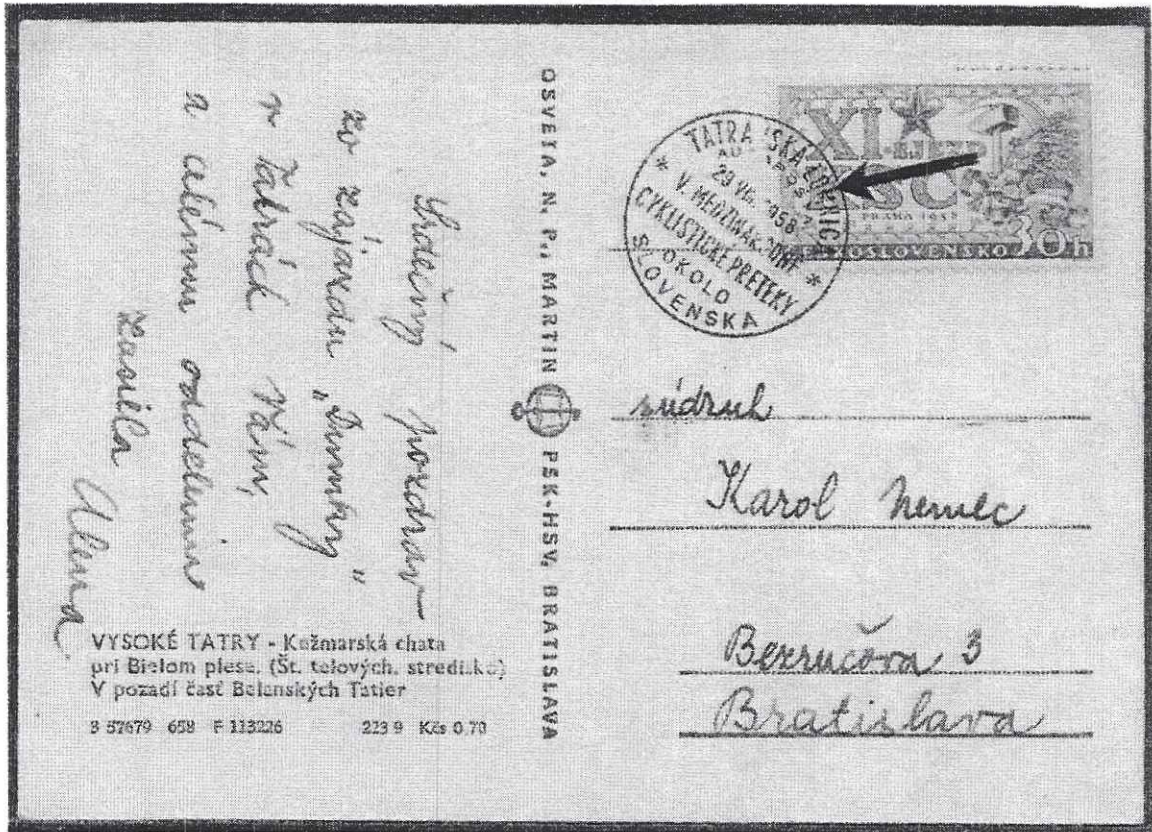 Srdečný pozdrav
zo zájazdu „Dumky"
v Tatrách Vám,
a celému oddeleniu
zasiela
Alena
VYSOKÉ TATRY - Kežmarská chata
pri Bielom plese. (Št. telových. stredisko)
V pozadí časť Belanských Tatier
S 57679 658 F 113226 223 9 Kčs 0.70
OSVETA, N. P., MARTIN PSK-HSV, BRATISLAVA
XI. SJEZD
KSČ
PRAHA 1958
ČESKOSLOVENSKO 30 h
TATRANSKÁ LOMNICA
AUTOPOŠTA
V. MEDZINÁRODNÉ
CYKLISTICKÉ PRETEKY
OKOLO
SLOVENSKA
súdruh
Karol Nemec
Bezručova 3
Bratislava